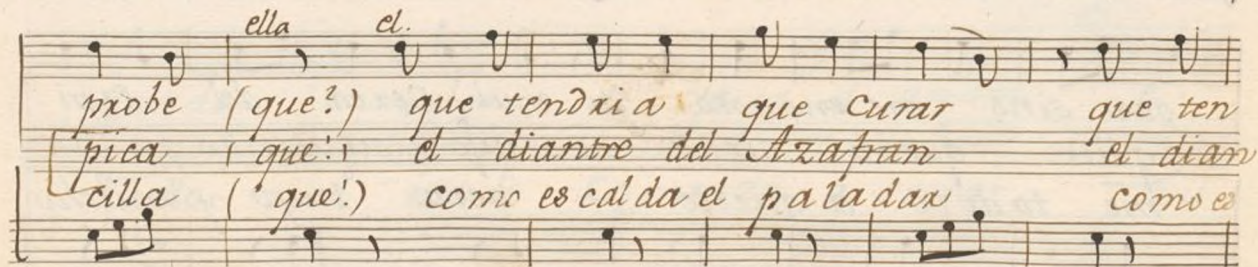 ella el.
probe (que?) que tendria que curar que ten
pica (que!) el diantre del Azafran el dian
cilla (que!) como es cal da el paladar como es